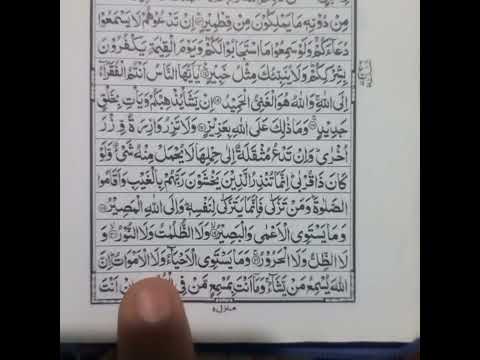 مِنْ دُوْنِهٖ مَا يَمْلِكُوْنَ مِنْ قِطْمِيْرٍ ۞ اِنْ تَدْعُوْهُمْ لَا يَسْمَعُوْا
دُعَآءَكُمْ ۚ وَلَوْ سَمِعُوْا مَا اسْتَجَابُوْا لَكُمْ ؕ وَيَوْمَ الْقِيٰمَةِ يَكْفُرُوْنَ
بِشِرْكِكُمْ ؕ وَلَا يُنَبِّئُكَ مِثْلُ خَبِيْرٍ ۞ يٰۤاَيُّهَا النَّاسُ اَنْتُمُ الْفُقَرَآءُ
اِلَى اللّٰهِ ۚ وَاللّٰهُ هُوَ الْغَنِيُّ الْحَمِيْدُ ۞ اِنْ يَّشَاْ يُذْهِبْكُمْ وَيَاْتِ بِخَلْقٍ
جَدِيْدٍ ۞ وَمَا ذٰلِكَ عَلَى اللّٰهِ بِعَزِيْزٍ ۞ وَلَا تَزِرُ وَازِرَةٌ وِّزْرَ
اُخْرٰى ؕ وَاِنْ تَدْعُ مُثْقَلَةٌ اِلٰى حِمْلِهَا لَا يُحْمَلْ مِنْهُ شَيْءٌ وَّلَوْ
كَانَ ذَا قُرْبٰى ؕ اِنَّمَا تُنْذِرُ الَّذِيْنَ يَخْشَوْنَ رَبَّهُمْ بِالْغَيْبِ وَاَقَامُوا
الصَّلٰوةَ ؕ وَمَنْ تَزَكّٰى فَاِنَّمَا يَتَزَكّٰى لِنَفْسِهٖ ؕ وَاِلَى اللّٰهِ الْمَصِيْرُ ۞
وَمَا يَسْتَوِي الْاَعْمٰى وَالْبَصِيْرُ ۞ وَلَا الظُّلُمٰتُ وَلَا النُّوْرُ ۞ وَ
لَا الظِّلُّ وَلَا الْحَرُوْرُ ۞ وَمَا يَسْتَوِي الْاَحْيَآءُ وَلَا الْاَمْوَاتُ ؕ اِنَّ
اللّٰهَ يُسْمِعُ مَنْ يَّشَآءُ ۚ وَمَاۤ اَنْتَ بِمُسْمِعٍ مَّنْ فِي اِنْ اَنْتَ
منزل ٥